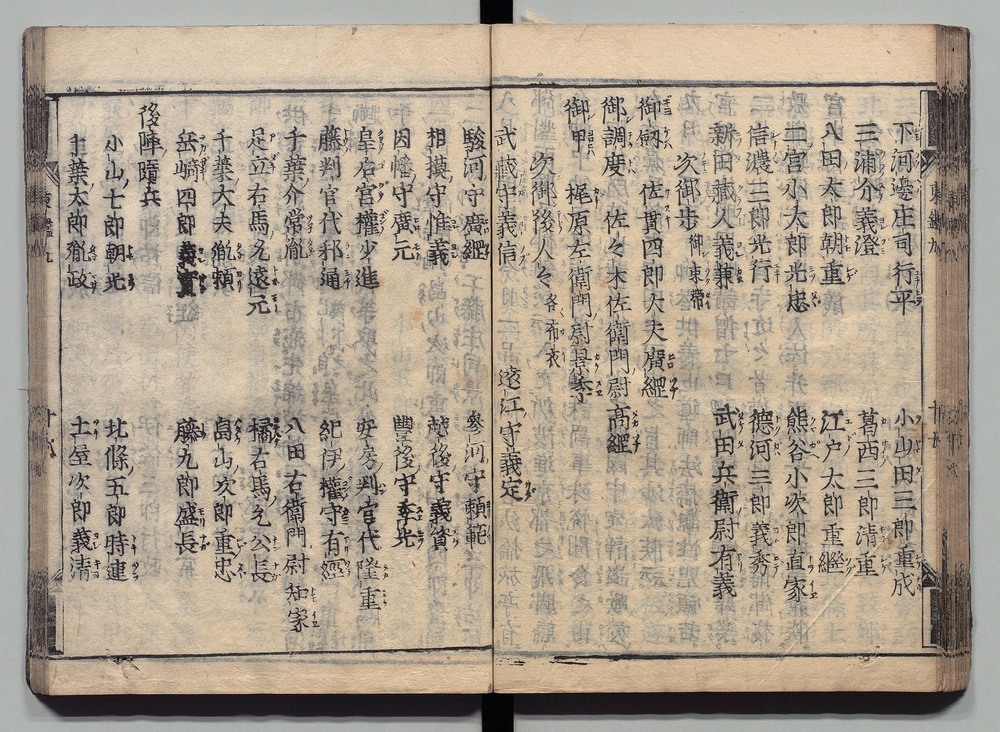 下河邊庄司行平　小山田三郎重成
三浦介義澄　葛西三郎清重
八田太郎朝重　江戸太郎重繼
二宮小太郎光忠　熊谷小次郎直家
信濃三郎光行　德河三郎義秀
新田藏人義兼　武田兵衛尉有義
次御歩 御束帶
御劔　佐貫四郎大夫廣經
御調度　佐々木佐衛門尉高經
御甲　梶原左衛門尉景季
次御後人々 各布衣
武藏守義信　遠江守義定
駿河守廣經　參河守賴範
相摸守惟義　越後守義資
因幡守廣元　豐後守季光
皇后宮權少進　安房判官代隆重
藤判官代邦通　紀伊權守有經
千葉介常胤　八田右衛門尉知家
足立右馬允遠元　橘右馬允公長
千葉大夫胤賴　畠山次郎重忠
岳﨑四郎義實　藤九郎盛長
後陣隨兵
小山七郎朝光　北條五郎時連
千葉太郎胤政　土屋次郎義清
東鑑九